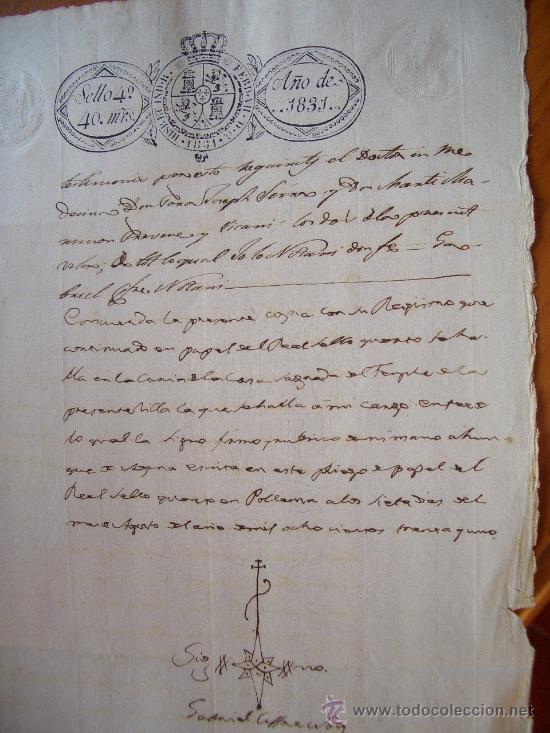 Sello 4º
40. mrs.
HISP. ET IND. R. FERDIN. VII. D. G. 1831
Año de
1831.
testimonis per esto requirits el Doctor in Me
decina Don Joseph y Don Marti Ma
y Vicari los dos de la present
vila; de tot lo qual Jo lo Notari don fe = Ga
briel Notari
Concuerda la presente copia con su Registro que
continuado en papel del Real sello quarto se ha
lla en la Curia de la Casa sagrada del Temple de la
presente Villa la que se halla á mi cargo en fee de
lo qual la signo firmo y rubrico de mi mano ahun
que de agena escrita en este pliego de papel del
Real sello quarto en Pollensa a los siete dias del
mes de Agosto del año de mil ocho cientos treinta y uno
Sig no.
Gabriel
todocoleccion
www.todocoleccion.net